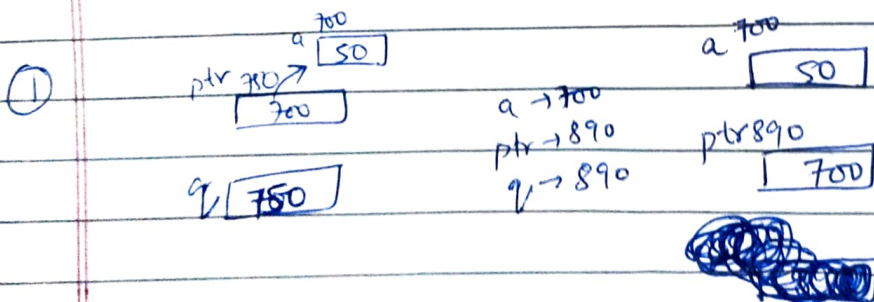 ① a 700
50
ptr 780
700
q 780
a → 700
ptr → 890
q → 890
a 700
50
ptr 890
700